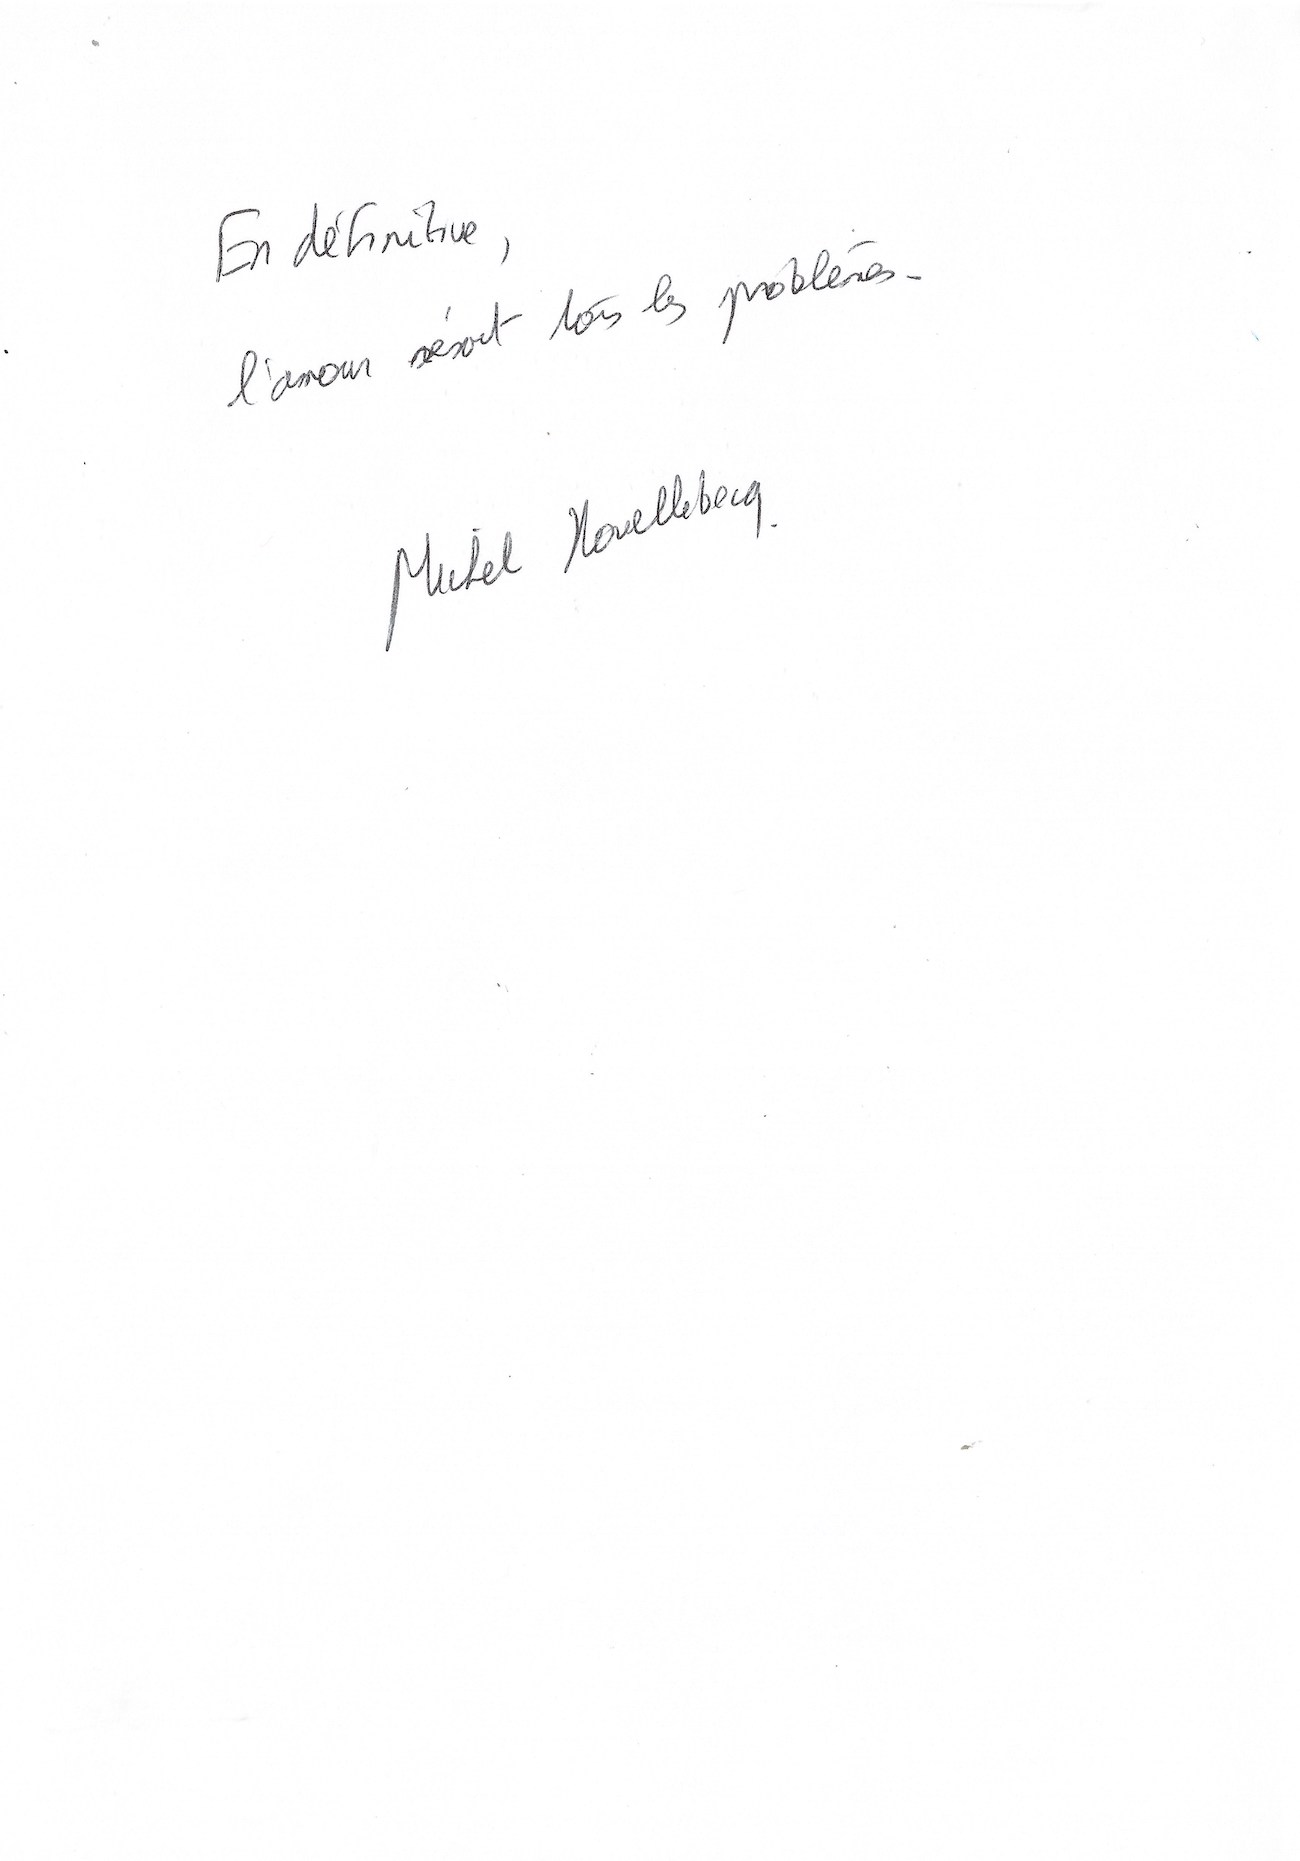 En définitive,
l'amour résout tous les problèmes.
Michel Houellebecq.